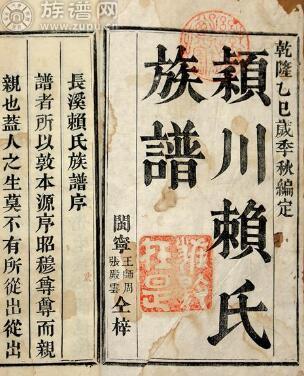 乾隆乙巳歲季秋編定
穎川賴氏
族譜
閩寧王師周張殿雲仝梓
長溪賴氏族譜序
譜者所以敦本源序昭穆尊尊而親
親也蓋人之生莫不有所從出從出
族譜网
www.zupu.cn